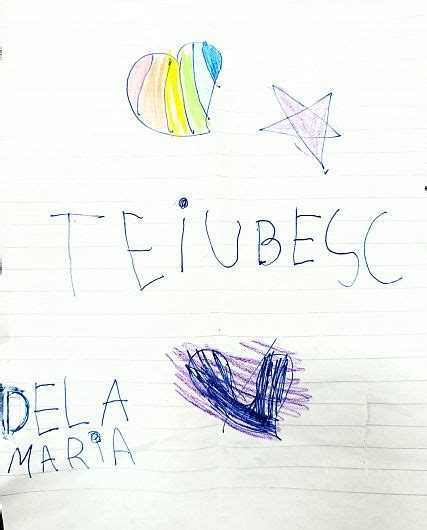 TEiUBESC
DELA
MARiA